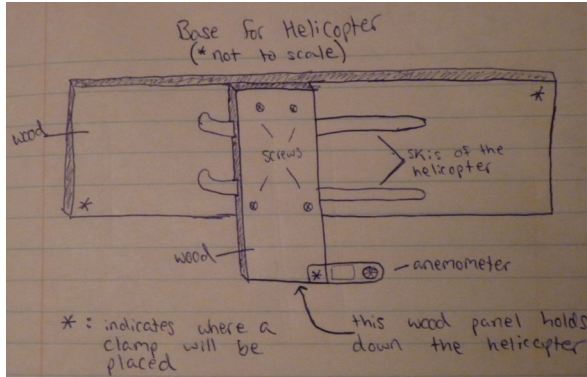 Base for Helicopter
(*not to scale)
*
wood
screws
skis of the
helicopter
*
wood
* anemometer
* : indicates where a
clamp will be
placed
this wood panel holds
down the helicopter